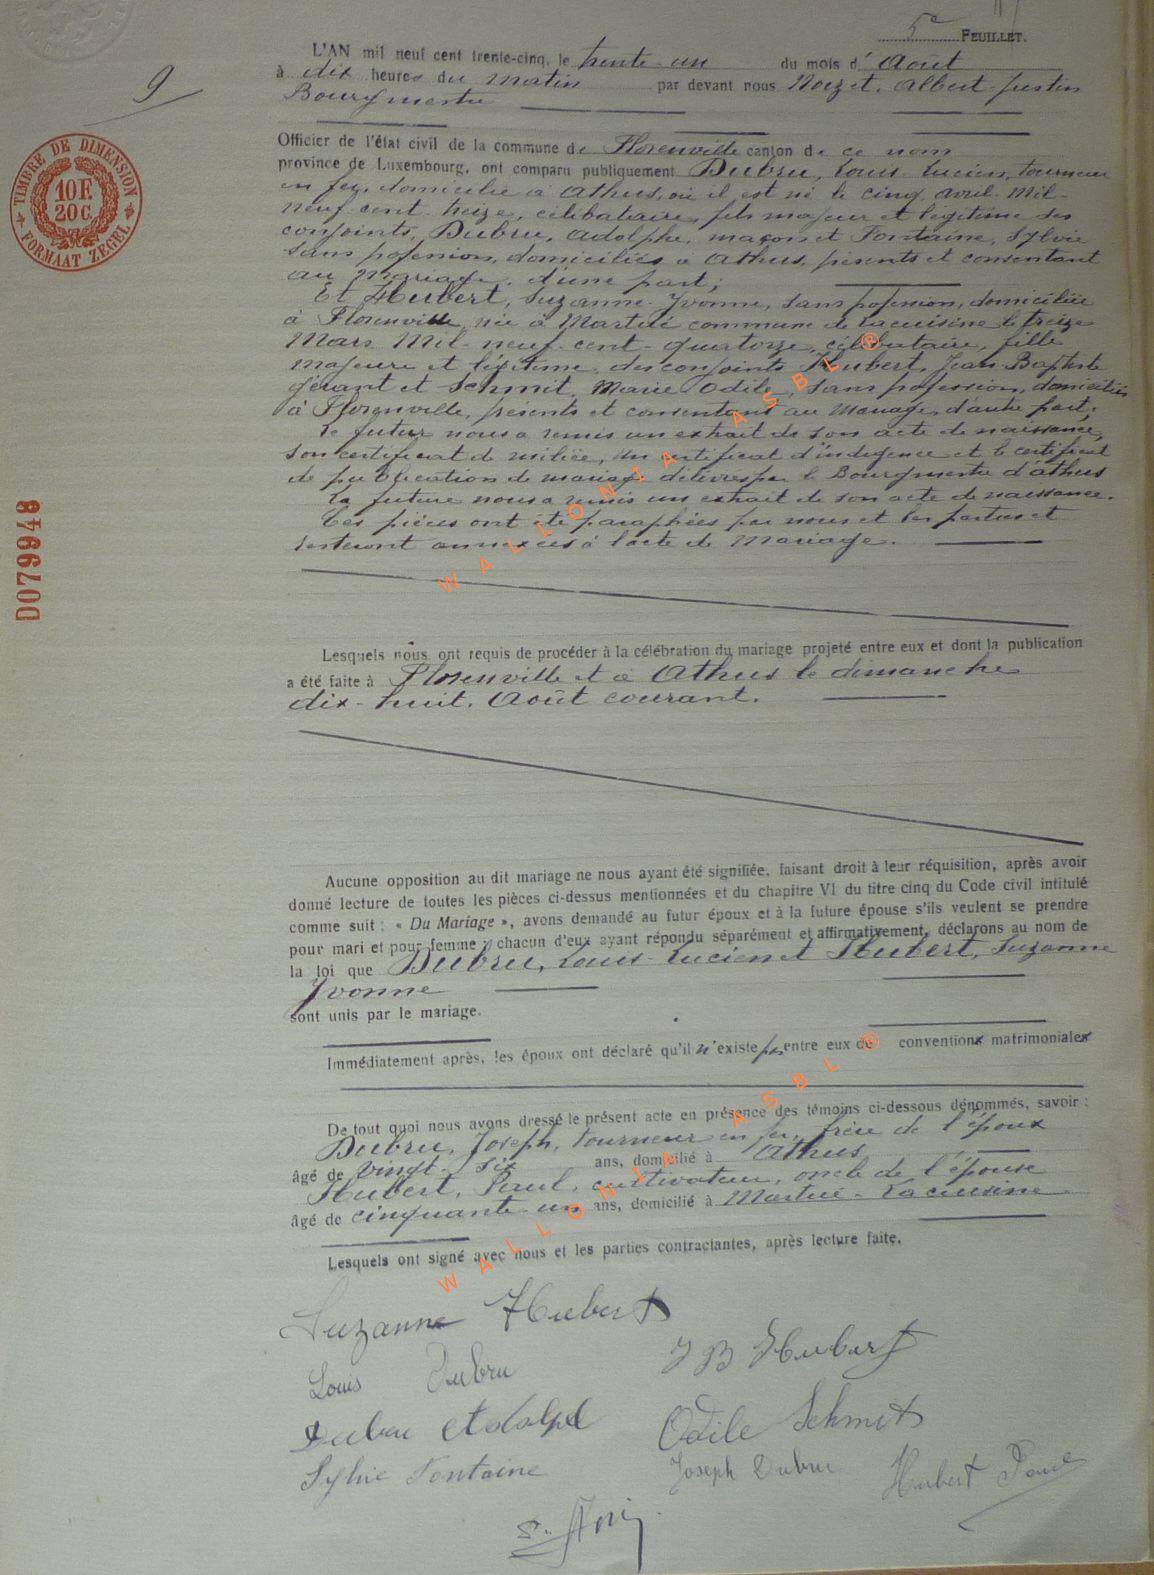 5e FEUILLET.
L'AN mil neuf cent trente-cinq, le trente-un du mois d' Août
à dix heures du matin par devant nous Nozet, Albert Justin
Bourgmestre
9
Officier de l'état civil de la commune de Florenville canton de ce nom
province de Luxembourg, ont comparu publiquement Dubru, Louis Lucien, tourneur
en fer, domicilié à Athus, où il est né le cinq avril mil-
neuf-cent-treize, célibataire, fils majeur et légitime des
conjoints, Dubru, Adolphe, maçon et Fontaine, Sylvie
sans profession, domiciliés à Athus, présents et consentant
au mariage, d'une part;
Et Hubert, Suzanne-Yvonne, sans profession, domiciliée
à Florenville, née à Martué commune de Lacuisine le treize
Mars Mil-neuf-cent-quatorze, célibataire, fille
majeure et légitime des conjoints Hubert, Jean Baptiste
gérant et Schmit, Marie Odile, sans profession, domiciliés
à Florenville, présents et consentant au mariage, d'autre part;
Le futur nous a remis un extrait de son acte de naissance,
son certificat de milice, un certificat d'indigence et le certificat
de publication de mariage délivrés par le Bourgmestre d'Athus
La future nous a remis un extrait de son acte de naissance.
Ces pièces ont été paraphées par nous et les parties et
resteront annexées à l'acte de Mariage.
Lesquels nous ont requis de procéder à la célébration du mariage projeté entre eux et dont la publication
a été faite à Florenville et à Athus le dimanche
dix-huit, Août courant.
Aucune opposition au dit mariage ne nous ayant été signifiée, faisant droit à leur réquisition, après avoir
donné lecture de toutes les pièces ci-dessus mentionnées et du chapitre VI du titre cinq du Code civil intitulé
comme suit : « Du Mariage », avons demandé au futur époux et à la future épouse s'ils veulent se prendre
pour mari et pour femme ; chacun d'eux ayant répondu séparément et affirmativement, déclarons au nom de
la loi que Dubru, Louis-Lucien et Hubert, Suzanne
Yvonne
sont unis par le mariage.
Immédiatement après, les époux ont déclaré qu'il n'existe pas entre eux de conventions matrimoniales
De tout quoi nous avons dressé le présent acte en présence des témoins ci-dessous dénommés, savoir :
Dubru, Joseph, tourneur en fer, frère de l'époux
âgé de vingt-six ans, domicilié à Athus
Hubert, Paul, cultivateur, oncle de l'épouse
âgé de cinquante-un ans, domicilié à Martué-Lacuisine
Lesquels ont signé avec nous et les parties contractantes, après lecture faite.
Suzanne Hubert
J B Hubert
Louis Dubru
Dubru Adolphe
Odile Schmit
Sylvie Fontaine
Joseph Dubru
Hubert Paul
TIMBRE DE DIMENSION
10 F.
20 C.
FORMAAT ZEGEL
D079948
WALLONIA ASBL ®
WALLONIA ASBL ®